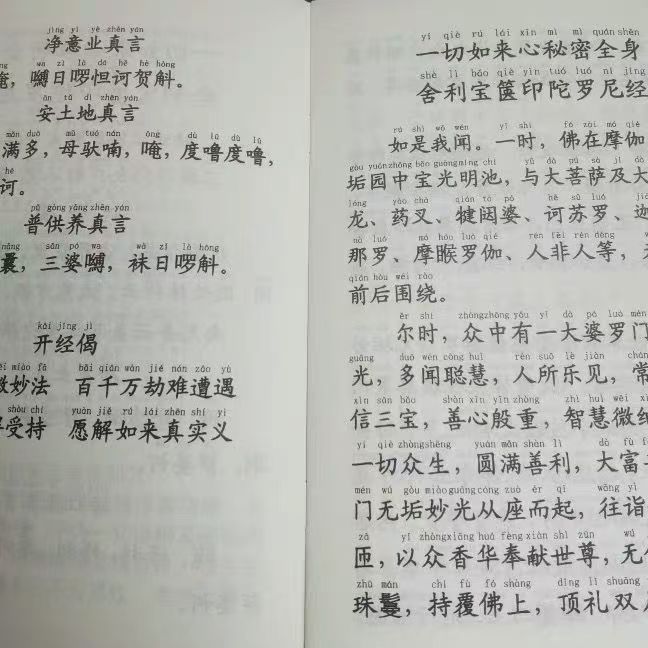 jìng yì yè zhēn yán
净意业真言
wa zī là dá hē hè hōng
唵，嚩日啰怛诃贺斛。
ān tǔ dì zhēn yán
安土地真言
mǎn duō mǔ tuó nán ōng dù lū dù lū
满多，母驮喃，唵，度噜度噜，
诃。
pǔ gòng yǎng zhēn yán
普供养真言
nǎng sān pó wa wà zī là hōng
曩，三婆嚩，袜日啰斛。
kāi jīng jì
开经偈
miào fǎ bǎi qiān wàn jié nán zāo yù
微妙法 百千万劫难遭遇
shòu chí yuàn jiě rú lái zhēn shí yì
受持 愿解如来真实义
yí qiè rú lái xīn mì mì quán shēn
一切如来心秘密全身
shè lì bǎo qiè yìn tuó luó ní jīng
舍利宝箧印陀罗尼经
rú shì wǒ wén fó zài mó qié
如是我闻。一时，佛在摩伽
gòu yuán zhōng bǎo guāng míng chí yǔ dà pú sà jí dà
垢园中宝光明池，与大菩萨及大
lóng yào chā qián tà pó hē sū luó jiā
龙、药叉、犍闼婆、诃苏罗、迦
nà luó mó hóu luó qié rén fēi rén děng
那罗、摩睺罗伽、人非人等，
qián hòu wéi rào
前后围绕。
ěr shí zhòng zhōng yǒu yí dà pó luó mén
尔时，众中有一大婆罗门
guāng duō wén cōng huì rén suǒ lè jiàn cháng
光，多闻聪慧，人所乐见，常
xìn sān bǎo shàn xīn yīn zhòng zhì huì wēi xì
信三宝，善心殷重，智慧微细
yí qiè zhòng shēng yuán mǎn shàn lì dà fù
一切众生，圆满善利，大富
mén wú gòu miào guāng cóng zuò ér qǐ wǎng yì
门无垢妙光从座而起，往诣
zā yǐ zhòng xiāng huā fèng xiàn shì zūn wú
匝，以众香华奉献世尊，无
zhū mán chí fù fó shàng dǐng lǐ shuāng
珠鬘，持覆佛上，顶礼双